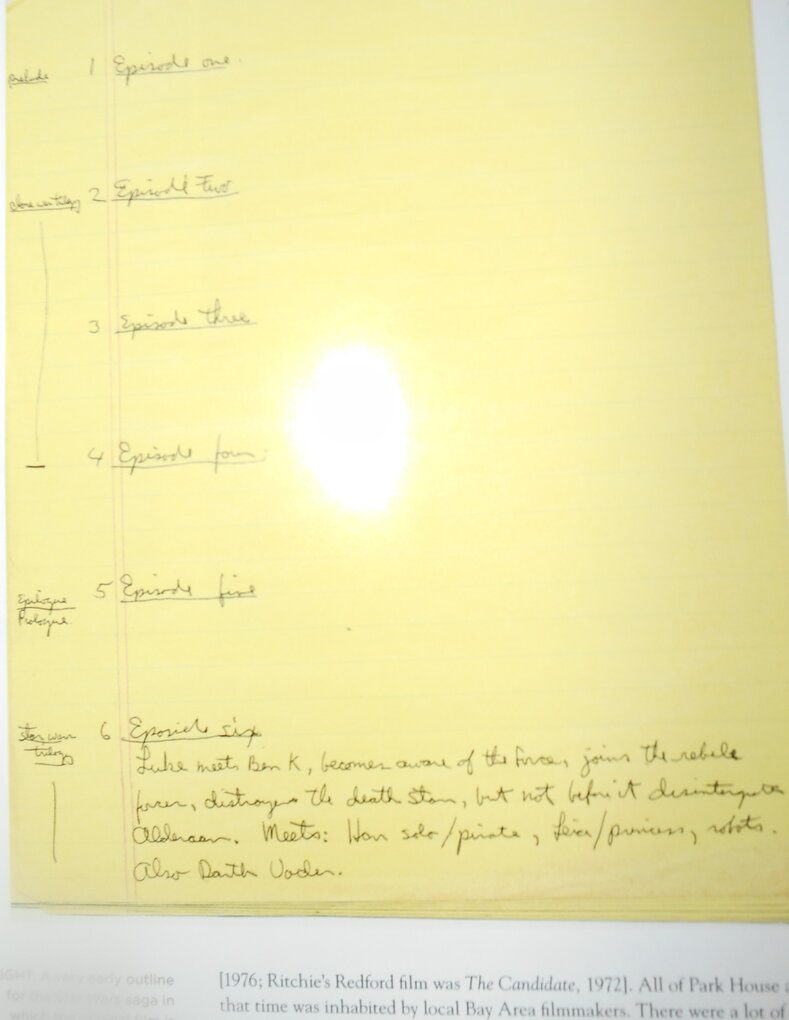 prelude 1 Episode one.
clone war trilogy 2 Episode Two
3 Episode three
4 Episode four.
Epilogue 5 Episode five
Prologue
star wars 6 Eposide six
trilogy
Luke meets Ben K, becomes aware of the force, joins the rebele
forces, distroyes the death Star, but not before it disintergrates
Alderaan. Meets: Han solo/pirate, Leia/princess, robots.
Also Darth Vader.
IGHT: A very early outline
for the Star Wars saga in
which
[1976; Ritchie's Redford film was The Candidate, 1972]. All of Park House
that time was inhabited by local Bay Area filmmakers. There were a lot of